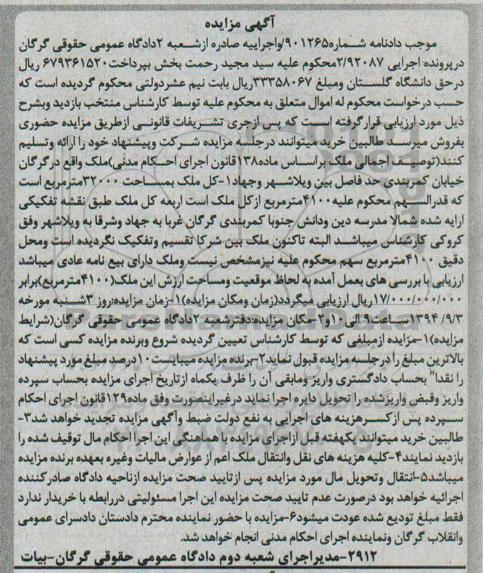 آگهی مزایده
موجب دادنامه شماره۹۰۱۲۶۵/واجراییه صادره ازشعبه ۲دادگاه عمومی حقوقی گرگان
درپرونده اجرایی ۲/۹۲۰۸۷محکوم علیه سید مجید رحمت بخش بپرداخت۶۷۹۳۶۱۵۲۰ ریال
درحق دانشگاه گلستان ومبلغ ۳۳۳۵۸۰۶۷ریال بابت نیم عشردولتی محکوم گردیده است که
حسب درخواست محکوم له اموال متعلق به محکوم علیه توسط کارشناس منتخب بازدید وبشرح
ذیل مورد ارزیابی قرارگرفته است که پس ازجری تشریفات قانونی ازطریق مزایده حضوری
بفروش میرسد طالبین خرید میتوانند درجلسه مزایده شرکت وپیشنهاد خود را ارائه وتسلیم
کنند(توصیف اجمالی ملک براساس ماده۱۳۸قانون اجرای احکام مدنی)ملک واقع درگرگان
خیابان کمربندی حد فاصل بین ویلاشهر وجهاد۱-کل ملک بمساحت ۳۲۰۰۰مترمربع است
که قدرالسهم محکوم علیه۴۱۰۰مترمربع ازکل ملک است اربعه کل ملک طبق نقشه تفکیکی
ارایه شده شمالا مدرسه دین ودانش جنوبا کمربندی گرگان غربا به جهاد وشرقا به ویلاشهر وفق
کروکی کارشناس میباشد البته تاکنون ملک بین شرکا تقسیم وتفکیک نگردیده است ومحل
دقیق ۴۱۰۰مترمربع سهم محکوم علیه نیزمشخص نیست وملک دارای بیع نامه عادی میباشد
ارزیابی با بررسی های بعمل آمده به لحاظ موقعیت ومساحت ارزش این ملک(۴۱۰۰مترمربع)برابر
۱۷/۰۰۰/۰۰۰/۰۰۰ریال ارزیابی میگردد(زمان ومکان مزایده)۱-زمان مزایده:روز ۳شنبه مورخه
۱۳۹۴ /۹/۳ ساعت۹ الی ۱۰و۲-مکان مزایده:دفترشعبه ۲دادگاه عمومی حقوقی گرگان(شرایط
مزایده)۱-مزایده ازمبلغی که توسط کارشناس تعیین گردیده شروع وبرنده مزایده کسی است که
بالاترین مبلغ را درجلسه مزایده قبول نماید۲-برنده مزایده میبایست۱۰درصد مبلغ مورد پیشنهاد
را نقدا" بحساب دادگستری واریز ومابقی آن را ظرف یکماه ازتاریخ اجرای مزایده بحساب سپرده
واریز وقبض واریزشده را تحویل دایره اجرا نماید درغیراینصورت وفق ماده۱۲۹قانون اجرای احکام
سپرده پس ازکسرهزینه های اجرایی به نفع دولت ضبط وآگهی مزایده تجدید خواهد شد۳-
طالبین خرید میتوانند یکهفته قبل ازاجرای مزایده با هماهنگی این اجرا احکام مال توقیف شده را
بازدید نمایند۴-کلیه هزینه های نقل وانتقال ملک اعم از عوارض مالیات وغیره بعهده برنده مزایده
میباشد۵-انتقال وتحویل مال مورد مزایده پس ازتایید صحت مزایده ازناحیه دادگاه صادرکننده
اجرائیه خواهد بود درصورت عدم تایید صحت مزایده این اجرا مسئولیتی دررابطه با خریدار ندارد
فقط مبلغ تودیع شده عودت میشود۶-مزایده با حضور نماینده محترم دادستان دادسرای عمومی
وانقلاب گرگان ونماینده اجرای احکام مدنی انجام خواهد شد.
۲۹۱۲-مدیراجرای شعبه دوم دادگاه عمومی حقوقی گرگان-بیات